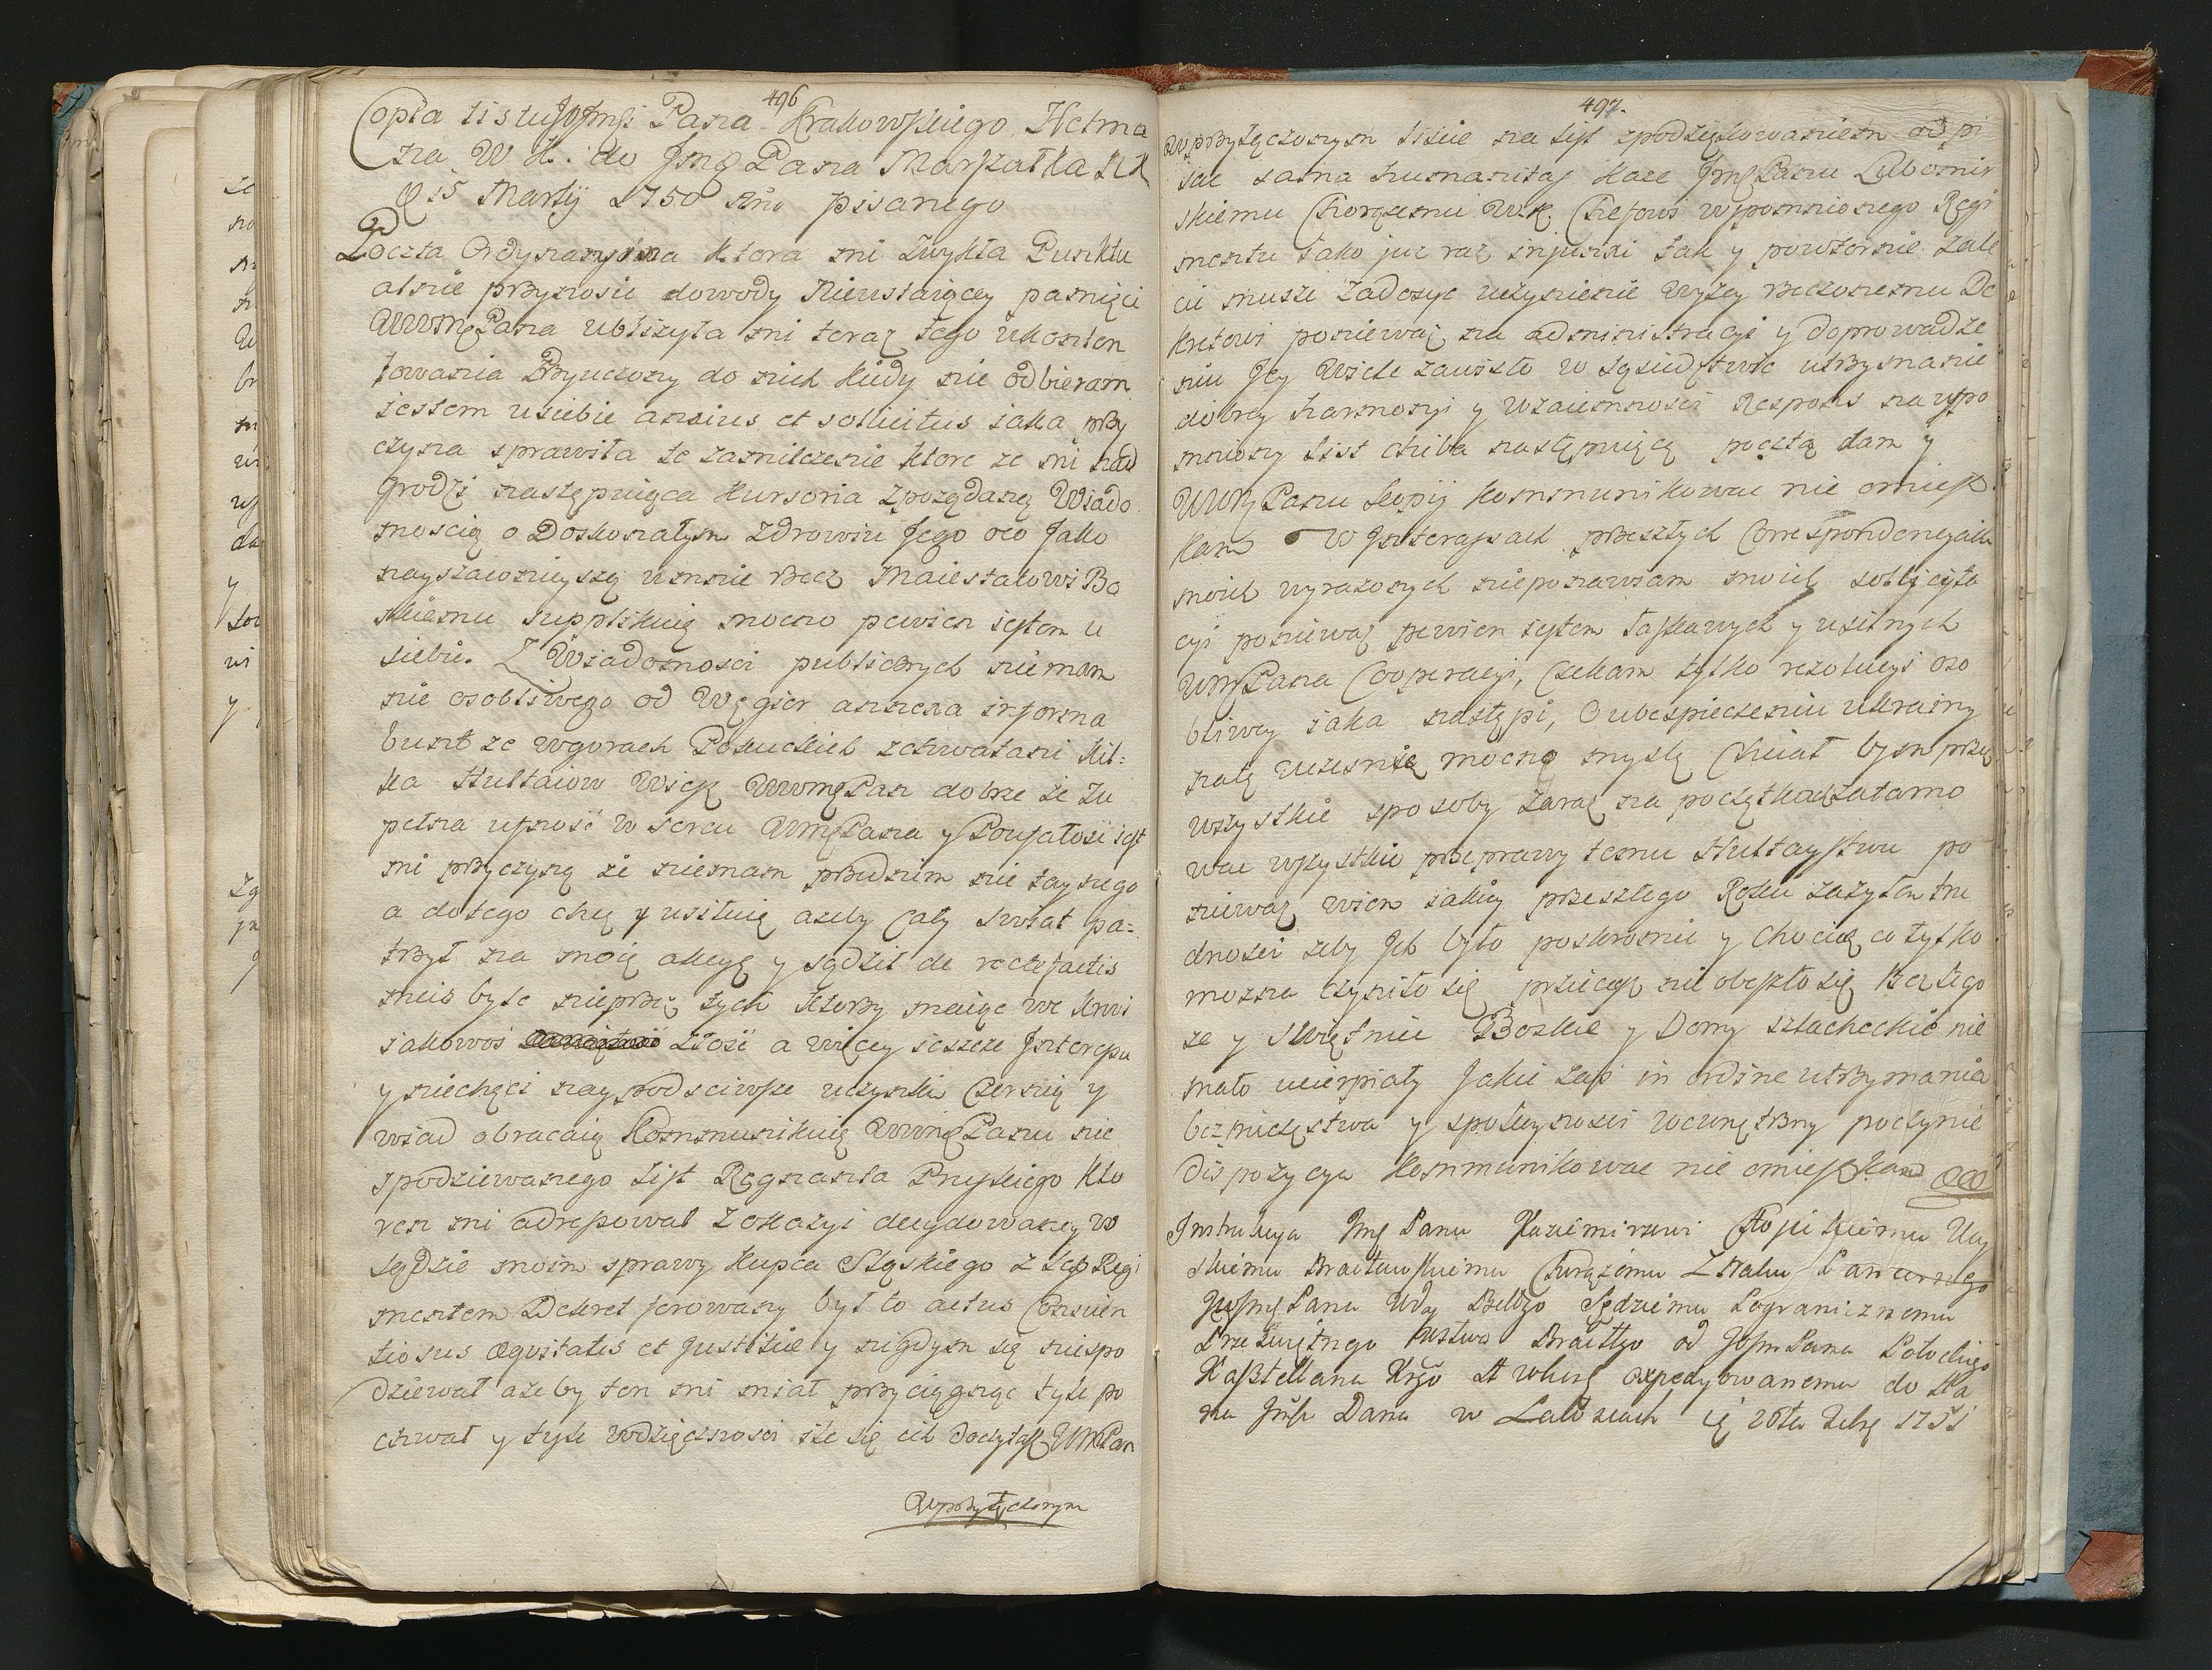 496
Copia listu JOJmsci Pana Krakowskiego Hetma
na W K. do Jmę Pana Marszałka N K
D 15 Martij 1750 Ano pisanego
Poczta Ordynaryina ktora mi zwykła Punktu
alnie przynosic dowody Nieustaiącey pamięci
WWMę Pana ubliżyła mi teraz tego ukonten
towania Przyuczony do nich kiedy nie odbieram
iestem u siebie anxius et sollicitus iaka przy
czyna sprawiła te zamilczenie ktore ze mi nad
grodzi następuiąca kursoria z pożądaną Wiado
moscią o Doskonałym zdrowiu Jego oco Jako
naysławnieyszą u mnie rzecz Maiestatowi Bo
skiemu supplikuię mocno pewien iestem u
siebie. Z Wiadomosci publicznych nie mam
nic osobliwego od Węgier annexa informa
bunt ze w gorach Pokuckich schwatani kil:
ka Hultaiow Wiesz WWMę Pan dobrze że zu
pełna ufność w sercu WMę Pana y Poufałość iest
mi przyczyną że nie mam przed nim nic taynego
a do tego chcę y usiłuię ażeby Cały Swiat pa=
trzył na moię akcyę y sądził de recte factis
meis byle nie przez tych ktorzy maiąc we krwi
iakowoś złość a więcy ieszcze Jnteressu
y niechęci naypodsciwsze uczynki czernią y
w iad obracaią Kommunikuię WWMę Panu nie
spodziewanego list Regnanta Pruskiego kto
ren mi adresował z okazyi decydowaney w
sądzie moim sprawy kupca Sląskiego z tesz Regi
mentem Dekret ferowany był to actus Conscien
tiosus aequitatis et Justitiae y nigdym się niespo
dziewał ażeby ten mi miał przyciągnąc tyle po
chwał y tyle wdzięcznosci ile się ich doczytasz WMPan
w przyłączonym
497.
w przyłączonym liscie na list z podziękowaniem od pi
sac sama humanitas każe Jmę Panu Lubomir
skiemu Chorążemu W.K. Chefowi wspomnionego Regi
mentu iako już raz iniunxi tak y powtornie zale
cic muszę zadosyc uczynienie wyżey rzeczonemu De
kretowi ponieważ na administracyi y doprowadze
niu Jey wiele zawisło w sąsiedztwie utrzymanie
dobrey harmonyi y wzaiemnosci Respons na wspo
mniony list chiba następuiącą pocztą dam y
WWMPanu kopij kommunikowac nie omiesz
kam W Jnteressach przeszłych Correspondencyach
moich wyrażonych nie ponawiam moich sollicyta
cyi ponieważ pewien iestem łaskawych y usilnych
WMPana Cooperacyi, Czekam tylko rezolucyi oso
bliwey iaka nastąpi, O ubespieczeniu Ukrainy
całą uczesnię mocno myslę Chciał bym przez
wszystkie sposoby zaraz na początku zatamo
wac wszystkie przeprawy temu Hultaystwu po
nieważ wiem iakiey przeszłego Roku zażyłem tru
dnosci żeby Jch było poskromic y chociaż co tylko
można czyniło się przecięż nie obeszło się bez tego
że y Swiątnice Boskie y Domy szlacheckie nie
mało ucierpiały Jakie zaś in ordine utrzymania
bezpieczęstwa y spokoynosci wewnętrzny poczynię
dispozycye kommunikowac nie omieszkam
Instrukcya Jmę Panu Kazimirzowi Woy
skiemu Bracławskiemu Chorążemu Znaku Pancernego
JWJmę Pana Wdy Bełzgo Sędziemu Pogranicznemu
Przeświętnego Wdztwa Bracłgo od JoJm Pana Potockiego
Kasztellana Krgo H W Korę expedyowanemu do Ha
na Jmsc Dana w Załoscach D 20ta Febr 1751